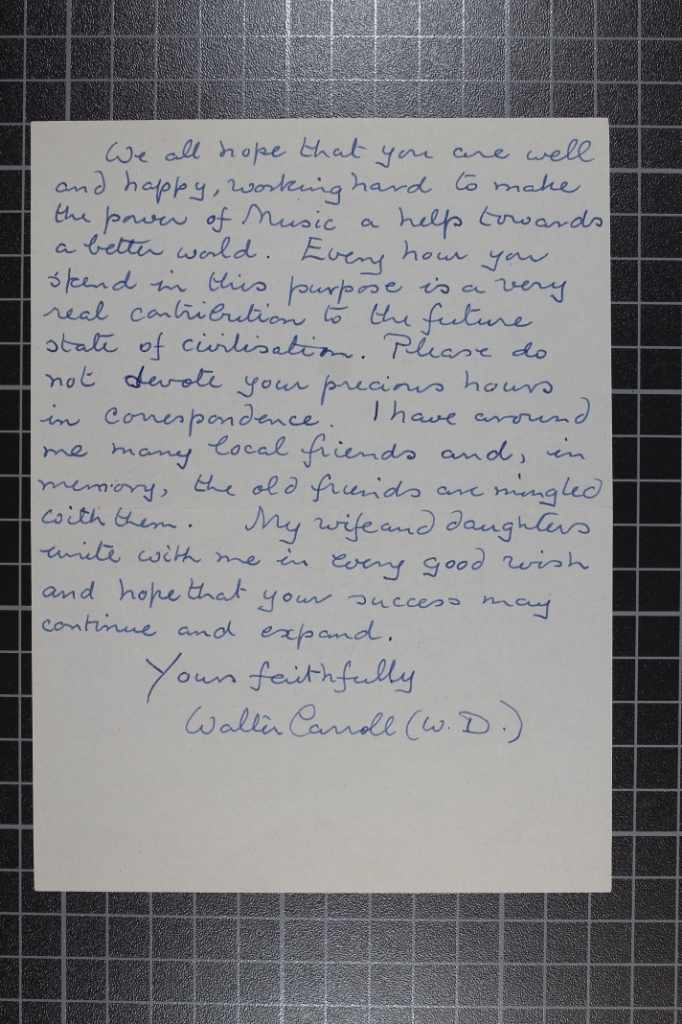 We all hope that you are well
and happy, working hard to make
the power of Music a help towards
a better world. Every hour you
spend in this purpose is a very
real contribution to the future
state of civilisation. Please do
not devote your precious hours
in correspondence. I have around
me many local friends and, in
memory, the old friends are mingled
with them. My wife and daughters
unite with me in every good wish
and hope that your success may
continue and expand.
Yours faithfully
Walter Carroll (W. D.)